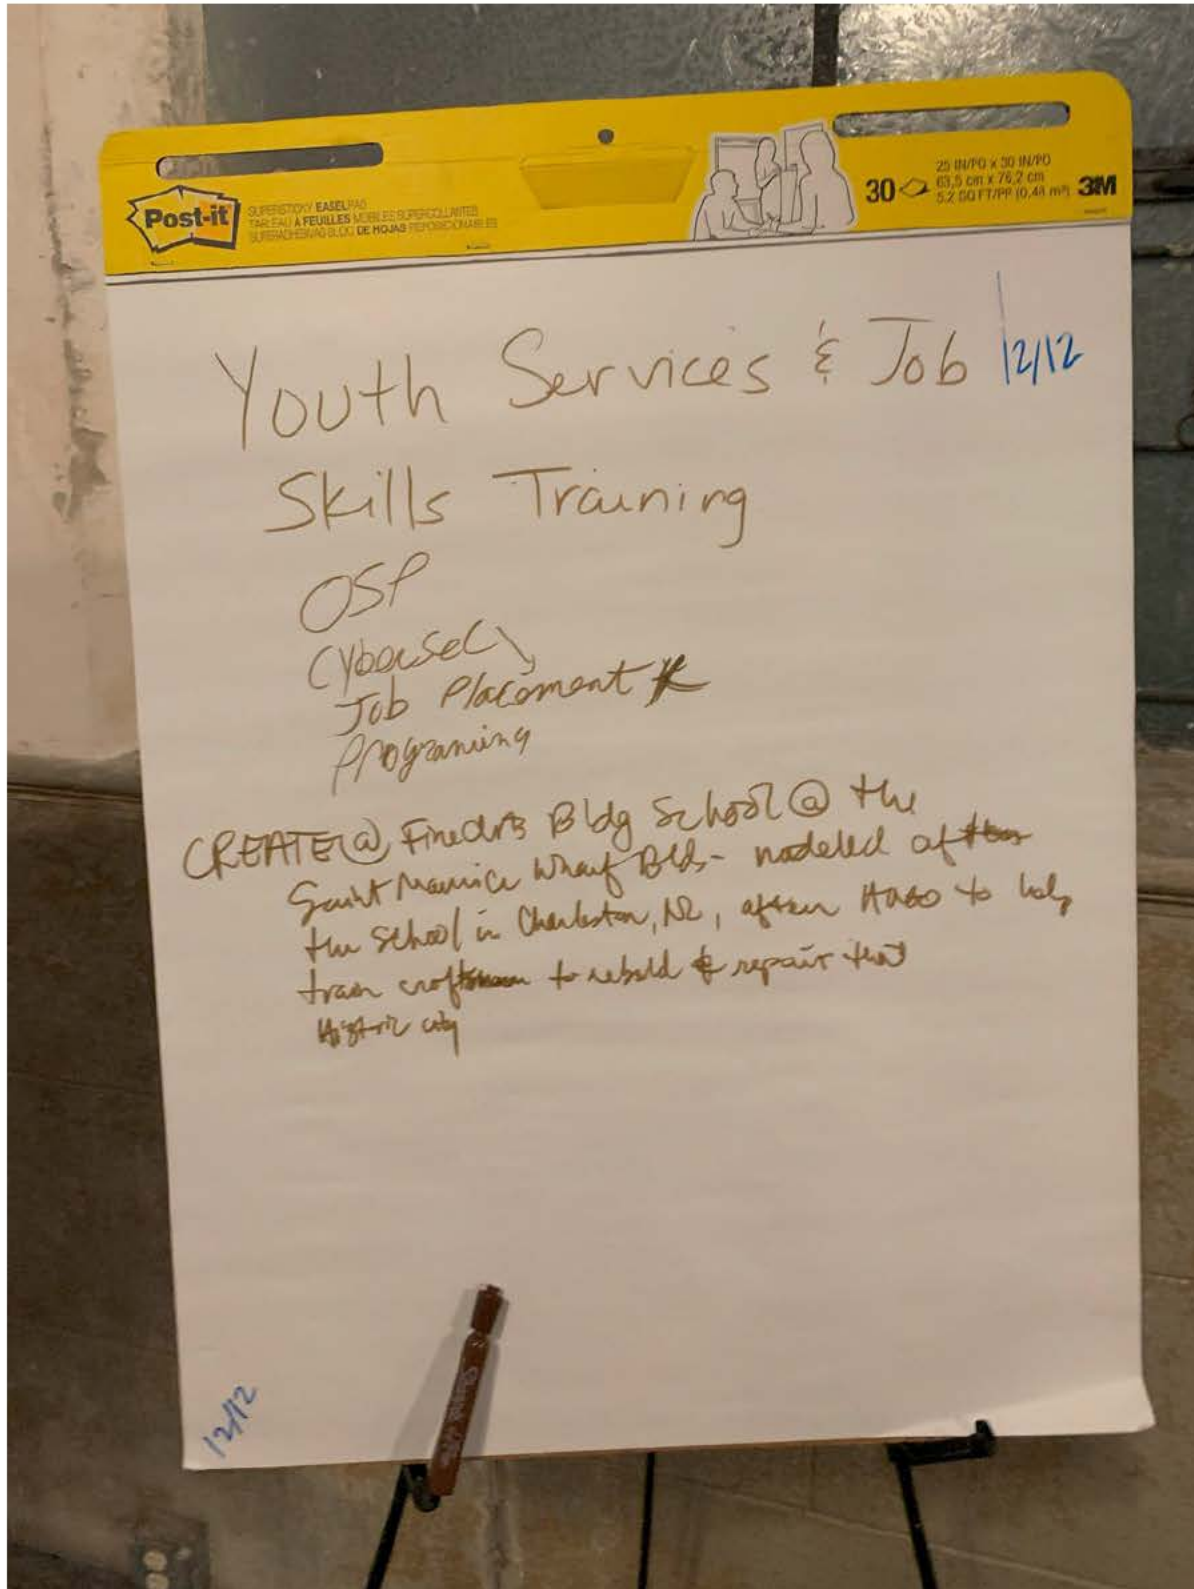 Post-it
SUPERSTICKY EASEL PAD
TABLEAU À FEUILLES MOBILES SUPERCOLLANTES
SUPERADHESIVAS BLOC DE HOJAS REPOSICIONABLES
30
25 IN/PO x 30 IN/PO
63,5 cm x 76,2 cm
5.2 SQ FT/PI² (0,48 m²)
3M
Youth Services & Job
12/12
Skills Training
OSP
Cybersec
Job Placement
Programing
CREATE @ Fine Arts Bldg School @ the
Saint Maurice Wharf Blds - modeled after
the school in Charleston, after Hugo to help
train craftsmen to rebuld & repair that
Historic city
12/12
Sharpie